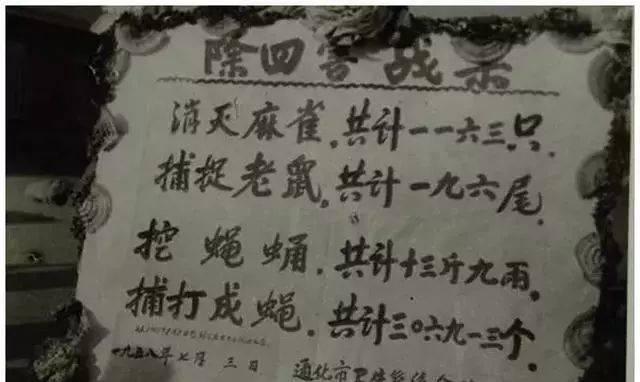 除四害战果
消灭麻雀.共计一一六三.只.
捕捉老鼠.共计一九六尾.
挖蝇蛹.共计十三斤九两.
捕打成蝇.共计三〇六九一三个.
一九五八年七月三日 通化市卫生